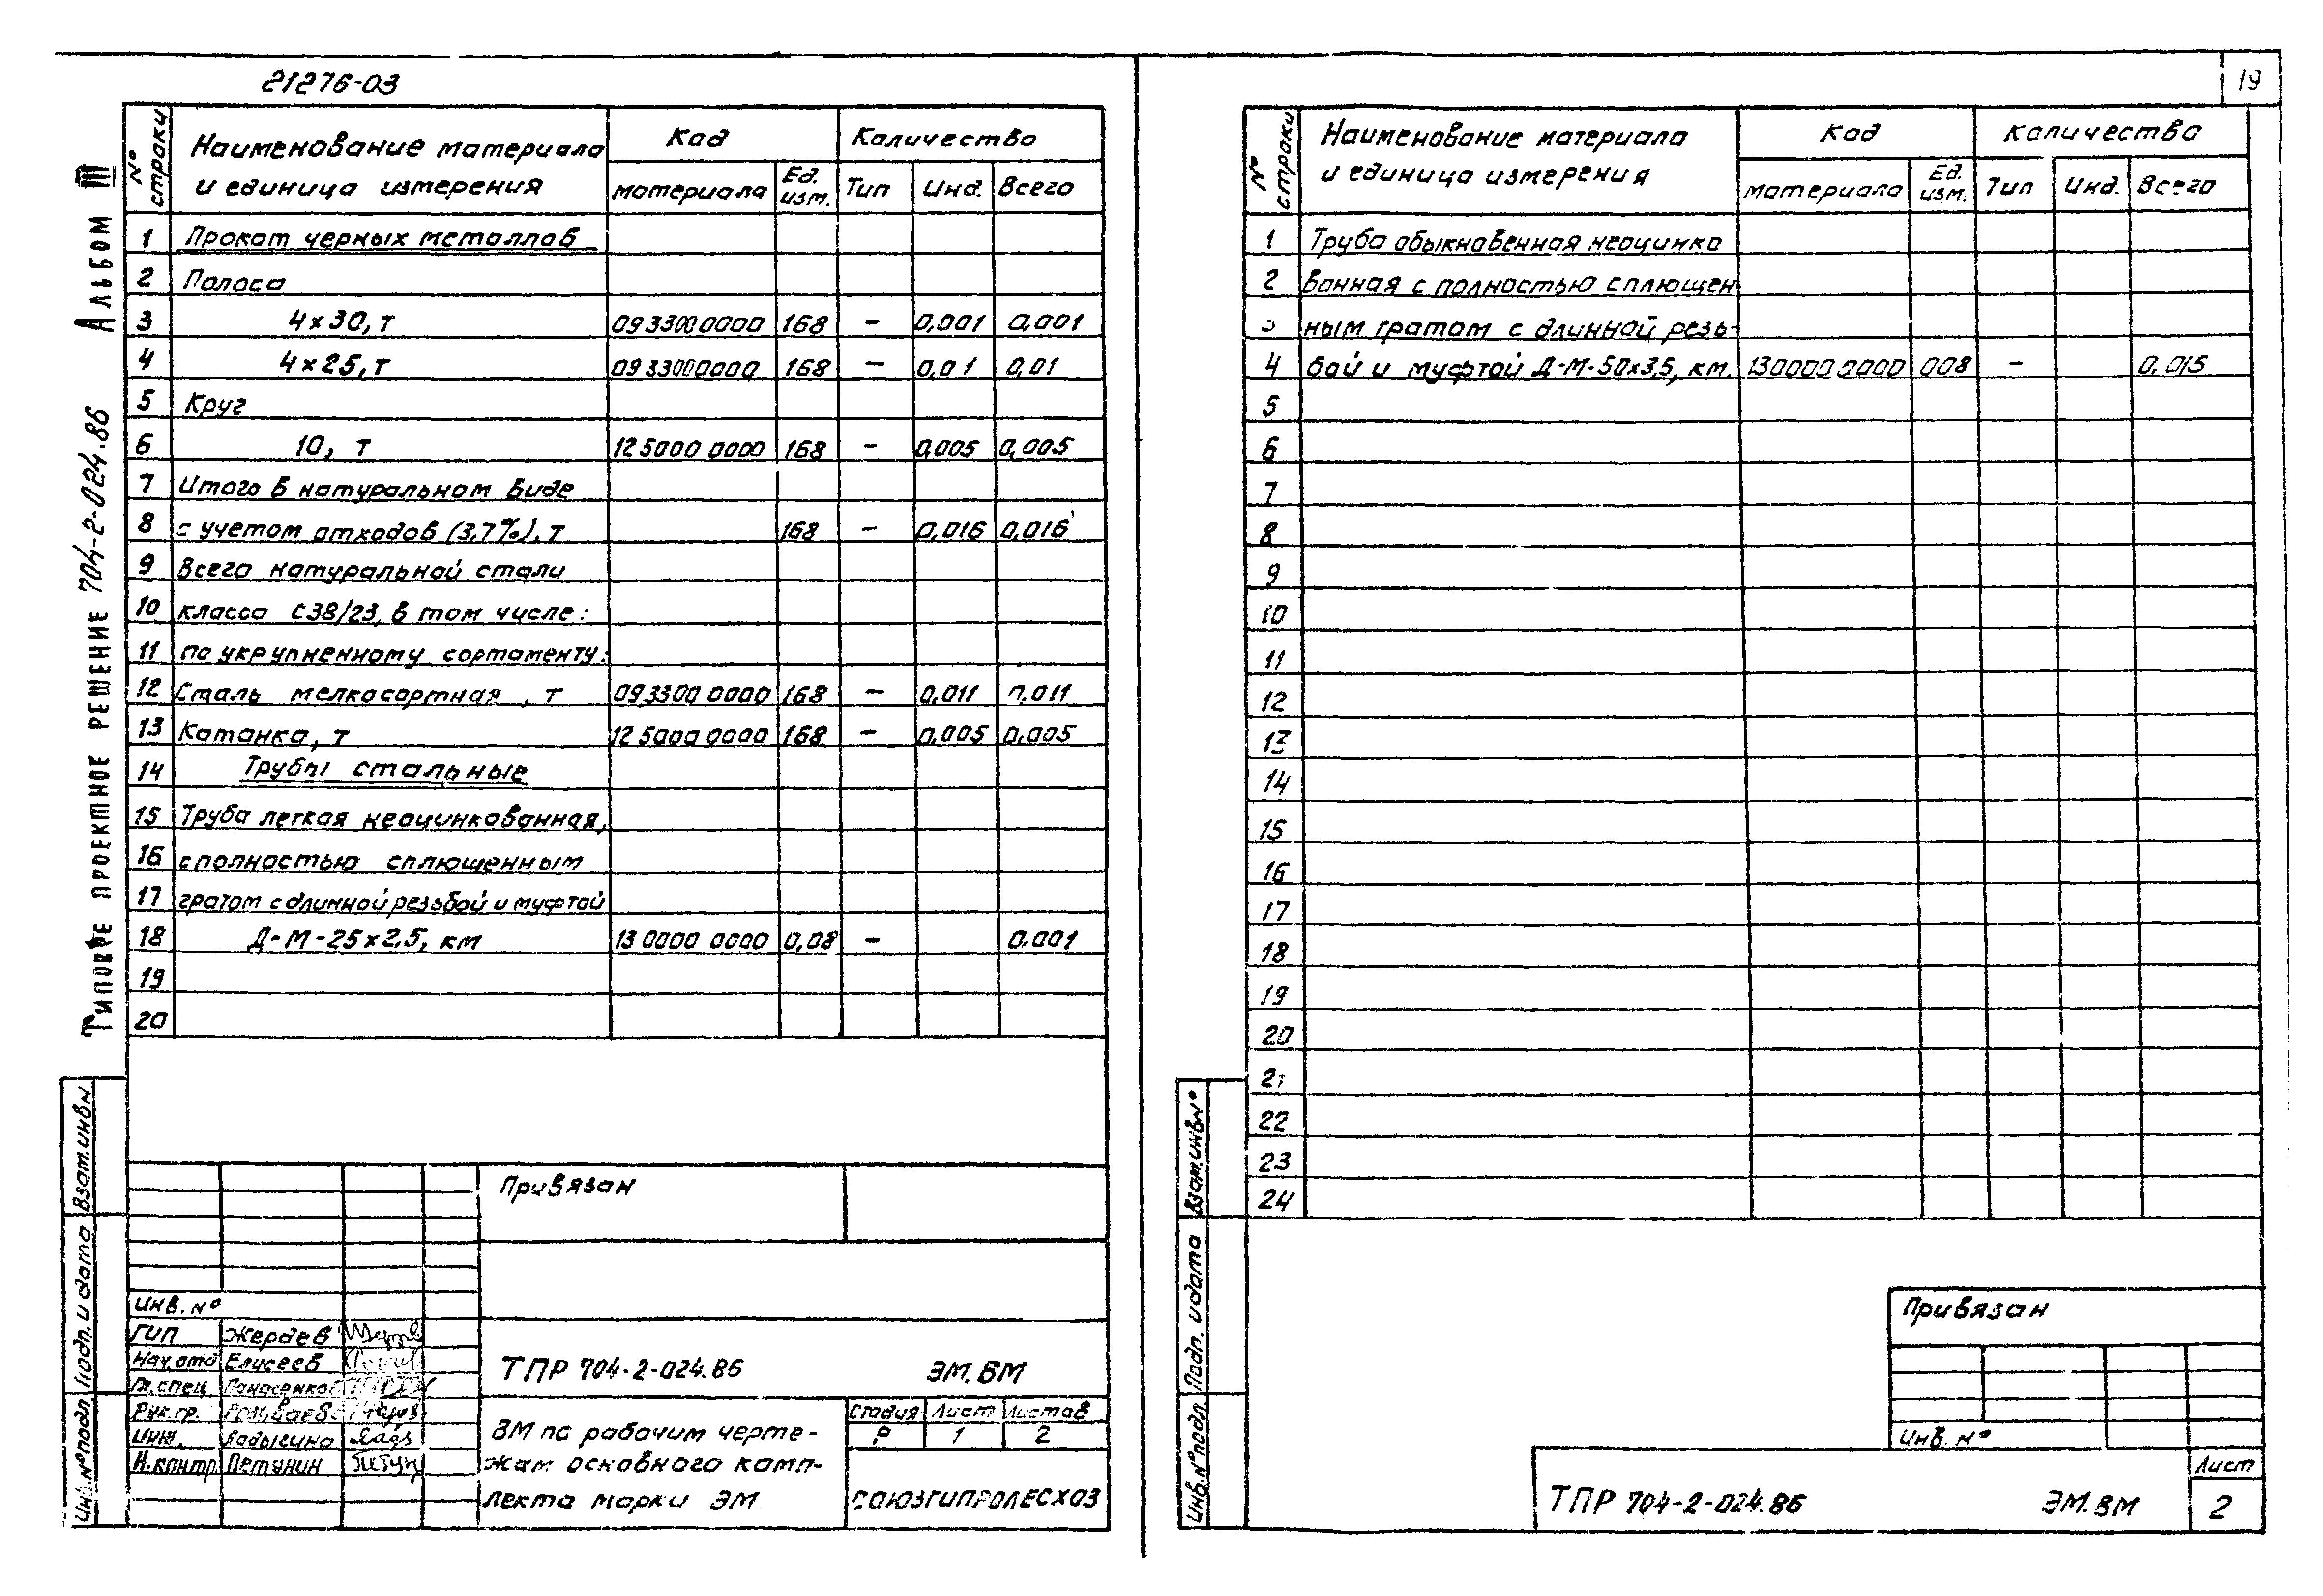 21276-03
19
Альбом III
Типовое проектное решение 704-2-024.86
№ строки
Наименование материала и единица измерения
Код
Количество
материала
Ед. изм.
Тип
Инд.
Всего
1 Прокат черных металлов
2 Полоса
3 4×30, т 093300 0000 168 – 0,001 0,001
4 4×25, т 093300 0000 168 – 0,01 0,01
5 Круг
6 10, т 125000 0000 168 – 0,005 0,005
7 Итого в натуральном виде
8 с учетом отходов (3,7%), т 168 – 0,016 0,016
9 Всего натуральной стали
10 класса С38/23, в том числе:
11 по укрупненному сортаменту:
12 Сталь мелкосортная, т 093300 0000 168 – 0,011 0,011
13 Катанка, т 125000 0000 168 – 0,005 0,005
14 Трубы стальные
15 Труба легкая неоцинкованная,
16 с полностью сплющенным
17 гратом с длинной резьбой и муфтой
18 Д-М-25×2,5, км 130000 0000 0,08 – 0,001
19
20
Взам. инв №
Подп. и дата
Инв. № подл.
Привязан
Инв. №
ГИП Жердев
Нач. отд Елисеев
Гл. спец
Рук. гр.
Инж. Ладыгина
Н. контр. Петунин
ТПР 704-2-024.86 ЭМ.ВМ
ВМ по рабочим черте-
жам основного комп-
лекта марки ЭМ.
Стадия Лист Листов
Р 1 2
СОЮЗГИПРОЛЕСХОЗ
№ строки
Наименование материала и единица измерения
Код
Количество
материала
Ед. изм.
Тип
Инд.
Всего
1 Труба обыкновенная неоцинко
2 ванная с полностью сплющен
3 ным гратом с длинной резь-
4 бой и муфтой Д-М-50×3,5, км. 130000 0000 008 – 0,015
5
6
7
8
9
10
11
12
13
14
15
16
17
18
19
20
21
22
23
24
Взам. инв №
Подп. и дата
Инв. № подл.
Привязан
Инв. №
ТПР 704-2-024.86 ЭМ.ВМ
Лист
2